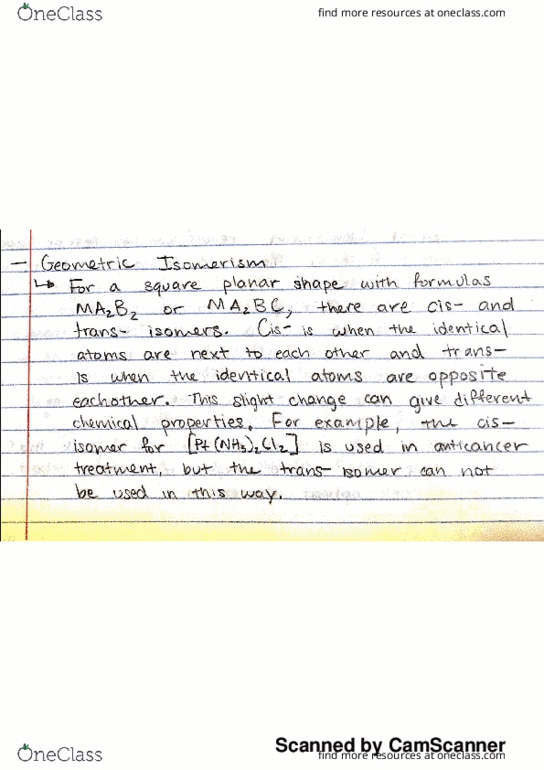 OneClass find more resources at oneclass.com
- Geometric Isomerism
↳ For a square planar shape with formulas
MA₂B₂ or MA₂BC, there are cis- and
trans- isomers. Cis- is when the identical
atoms are next to each other and trans-
is when the identical atoms are opposite
eachother. This slight change can give different
chemical properties. For example, the cis-
isomer for [Pt(NH₃)₂Cl₂] is used in anticancer
treatment, but the trans- isomer can not
be used in this way.
Scanned by CamScanner
OneClass find more resources at oneclass.com